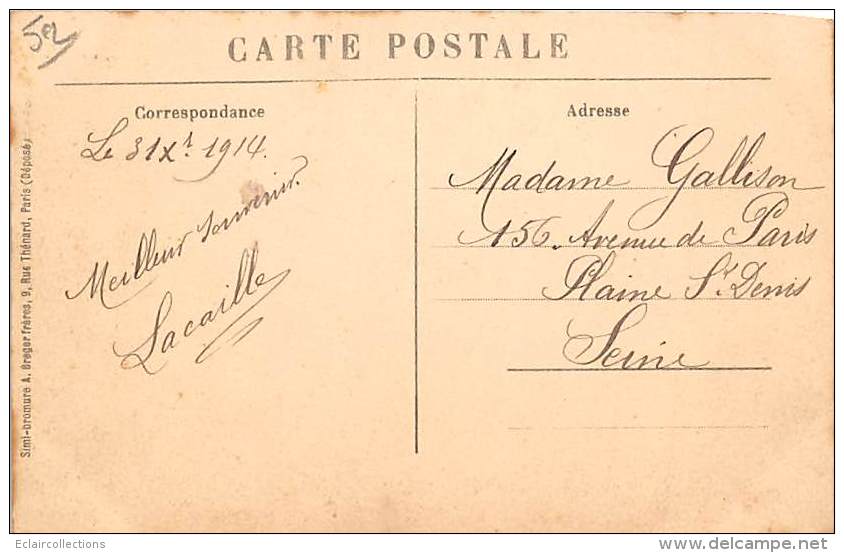 52
CARTE POSTALE
Correspondance
Le 31 Xt 1914.
Meilleur souvenir.
Lacaille
Adresse
Madame Gallison
156. Avenue de Paris
Plaine St. Denis
Seine
Simi-bromure A. Breger frères, 9, Rue Thénard, Paris (Déposé)
Eclaircollections
www.delcampe.net